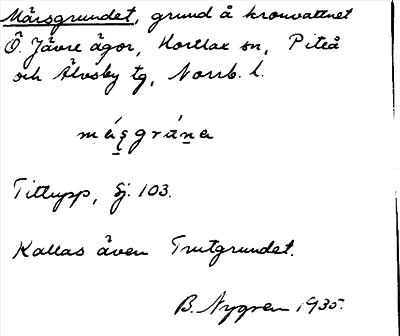 Mårsgrundet, grund å kronvattnet
Ö. Jävre ägor, Hortlax sn, Piteå
och Älvsby tg, Norrb. l.
Tittupp, Sj. 103.
Kallas även Trutgrundet.
B. Nygren 1935.